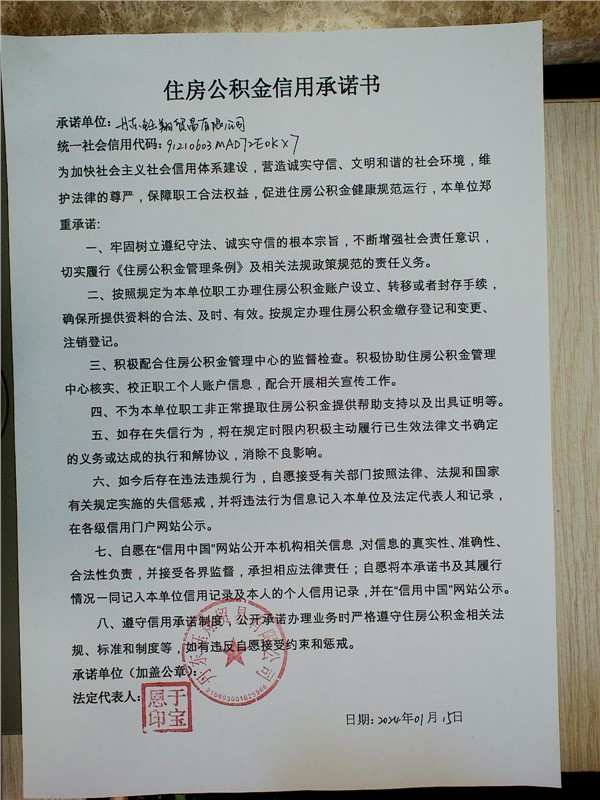 住房公积金信用承诺书
承诺单位：丹东翔贸易有限公司
统一社会信用代码：91210603MAD72E0KX7
为加快社会主义社会信用体系建设，营造诚实守信、文明和谐的社会环境，维
护法律的尊严，保障职工合法权益，促进住房公积金健康规范运行，本单位郑
重承诺：
一、牢固树立遵纪守法、诚实守信的根本宗旨，不断增强社会责任意识，
切实履行《住房公积金管理条例》及相关法规政策规范的责任义务。
二、按照规定为本单位职工办理住房公积金账户设立、转移或者封存手续，
确保所提供资料的合法、及时、有效。按规定办理住房公积金缴存登记和变更、
注销登记。
三、积极配合住房公积金管理中心的监督检查。积极协助住房公积金管理
中心核实、校正职工个人账户信息，配合开展相关宣传工作。
四、不为本单位职工非正常提取住房公积金提供帮助支持以及出具证明等。
五、如存在失信行为，将在规定时限内积极主动履行已生效法律文书确定
的义务或达成的执行和解协议，消除不良影响。
六、如今后存在违法违规行为，自愿接受有关部门按照法律、法规和国家
有关规定实施的失信惩戒，并将违法行为信息记入本单位及法定代表人和记录，
在各级信用门户网站公示。
七、自愿在“信用中国”网站公开本机构相关信息，对信息的真实性、准确性、
合法性负责，并接受各界监督，承担相应法律责任；自愿将本承诺书及其履行
情况一同记入本单位信用记录及本人的个人信用记录，并在“信用中国”网站公示。
八、遵守信用承诺制度，公开承诺办理业务时严格遵守住房公积金相关法
规、标准和制度等，如有违反自愿接受约束和惩戒。
承诺单位（加盖公章）：
丹东翔贸易有限公司
法定代表人：
于宝恩印
日期：2024年01月15日